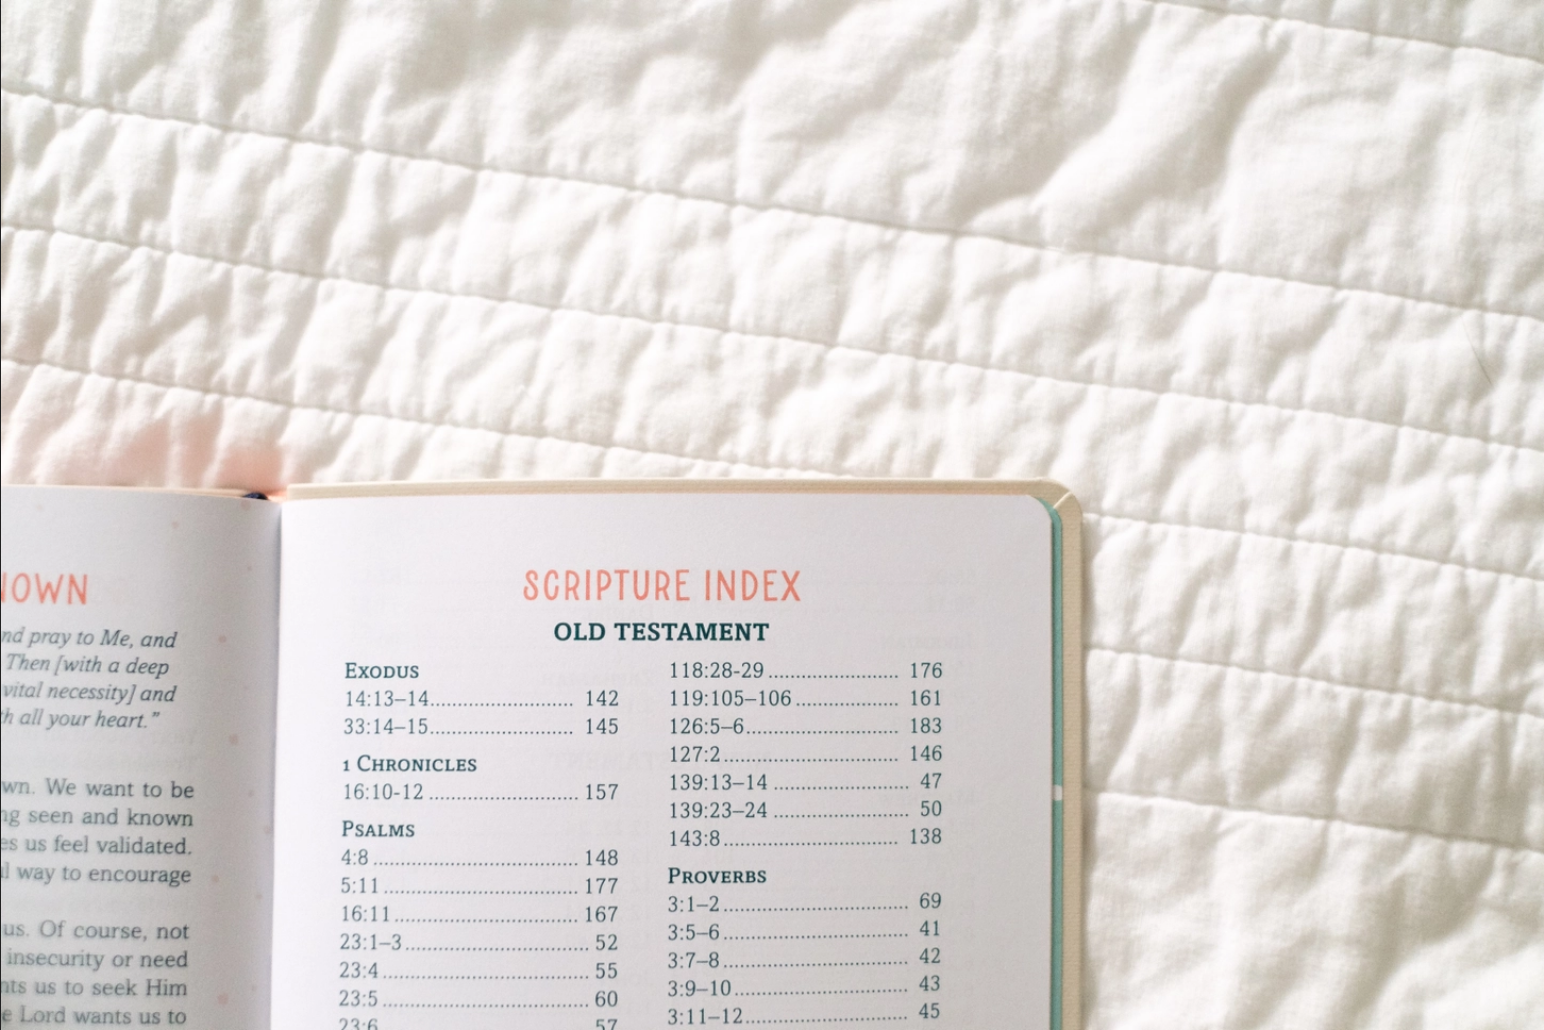 nd pray to Me, and
Then [with a deep
vital necessity] and
all your heart."
We want to be
seen and known
us feel validated.
way to encourage
us. Of course, not
insecurity or need
us to seek Him
Lord wants us to
SCRIPTURE INDEX
OLD TESTAMENT
EXODUS
14:13–14.......................... 142
33:14–15.......................... 145
1 CHRONICLES
16:10-12 ........................... 157
PSALMS
4:8...................................... 148
5:11.................................... 177
16:11.................................. 167
23:1–3................................ 52
23:4.................................... 55
23:5.................................... 60
23:6.................................... 57
118:28-29 ........................ 176
119:105–106................... 161
126:5–6............................ 183
127:2................................ 146
139:13–14 ........................ 47
139:23–24 ....................... 50
143:8................................ 138
PROVERBS
3:1–2.................................. 69
3:5–6.................................. 41
3:7–8.................................. 42
3:9–10................................ 43
3:11–12.............................. 45